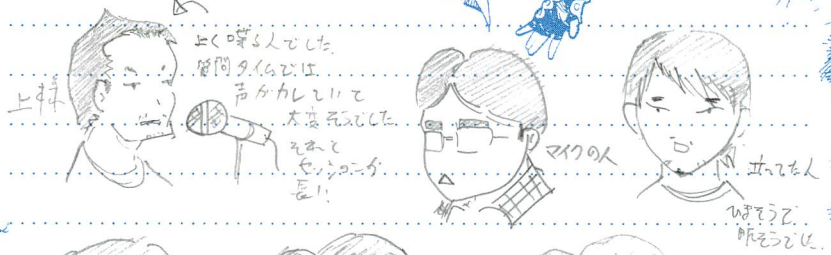 上様
よく喋る人でした。
質問タイムでは
声がカレていて
大変そうでした
それと
セッションが
長い!
マイクの人
立ってた人
ひまそうで
眠そうでした。